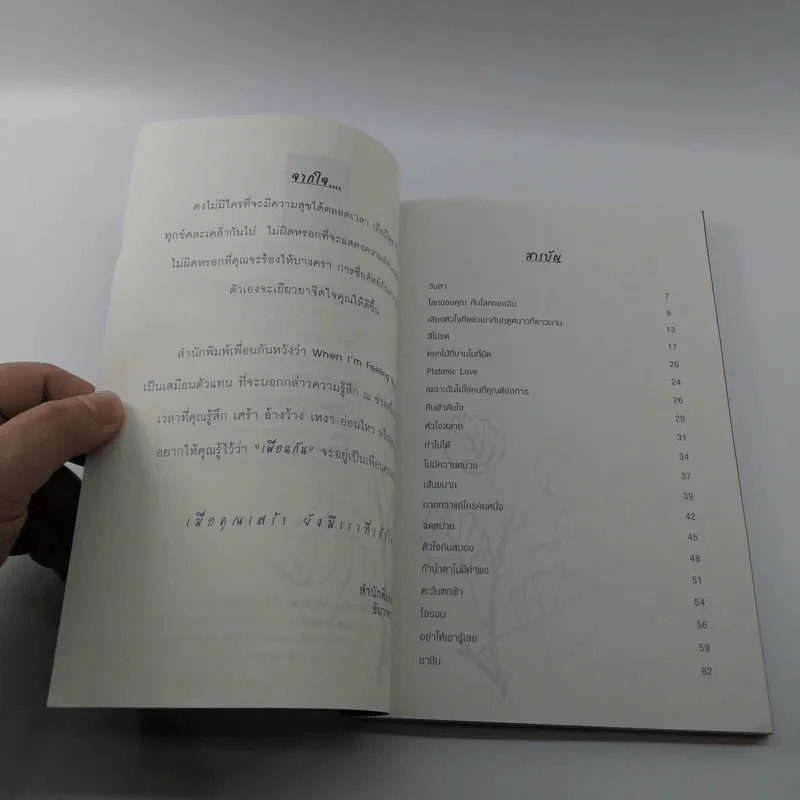 จากใจ....
คงไม่มีใครที่จะมีความสุขได้ตลอดเวลา
ทุกข์คละเคล้ากันไป ไม่ผิดหรอกที่จะแสดงความ
ไม่ผิดหรอกที่คุณจะร้องไห้บางครา การซื่อสัตย์กับ
ตัวเองจะเยียวยาจิตใจคุณให้ดีขึ้น
สำนักพิมพ์เพื่อนกันหวังว่า When I'm Feeling
เป็นเสมือนตัวแทน ที่จะบอกกล่าวความรู้สึก ณ
เวลาที่คุณรู้สึก เศร้า อ้างว้าง เหงา อ่อนไหว
อยากให้คุณรู้ไว้ว่า "เพื่อนกัน" จะอยู่เป็นเพื่อน
เมื่อคุณเศร้า ยังมีเราที่
สารบัญ
วันลา 7
โลกของคุณ กับโลกของฉัน 9
เสียงหัวใจที่แผ่วเบากับฤดูหนาวที่ยาวนาน 13
สีโปรด 17
ดอกไม้ที่บานในที่มืด 20
Platonic Love 24
เพราะฉันไม่ใช่คนที่คุณต้องการ 26
คืนฟ้าดับใจ 29
หัวใจสลาย 31
ทำไม่ได้ 34
ไม่มีความหมาย 37
เส้นขนาน 39
มากกว่าแค่ใครคนหนึ่ง 42
จดหมาย 45
หัวใจกับสมอง 48
ถ้าน้ำตาไม่มีค่าพอ 51
ตะวันตกฟ้า 54
ใจรอน 56
อย่าให้เขารู้เลย 59
ชาชิน 62